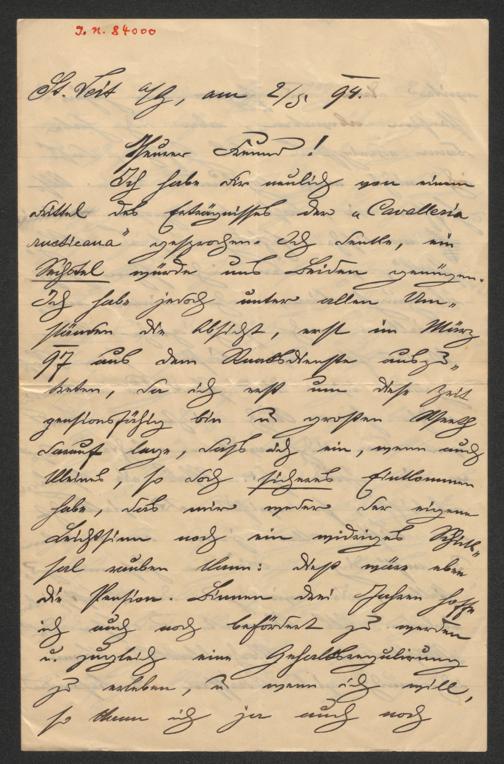 I. N. 84000
St. Veit a/G, am 2/5 94.
Theurer Freund!
Ich habe Dir neulich von einem
Drittel des Erträgnisses der „Cavalleria
rusticana" gesprochen. Ich denke, ein
Sechstel würde uns Beiden genügen.
Ich habe jedoch unter allen Um-
ständen die Absicht, erst im März
97 aus dem Staatsdienste auszu-
treten, da ich erst um diese Zeit
pensionsfähig bin u. großen Werth
darauf lege, daß ich ein, wenn auch
kleines, so doch sicheres Einkommen
habe, das mir weder der eigene
Leichtsinn noch ein widriges Schick-
sal rauben kann: dieß wäre eben
die Pension. Binnen drei Jahren hoffe
ich auch noch befördert zu werden
u. zugleich eine Gehaltsregulirung
zu erleben, u. wenn ich will,
so kann ich ja auch noch